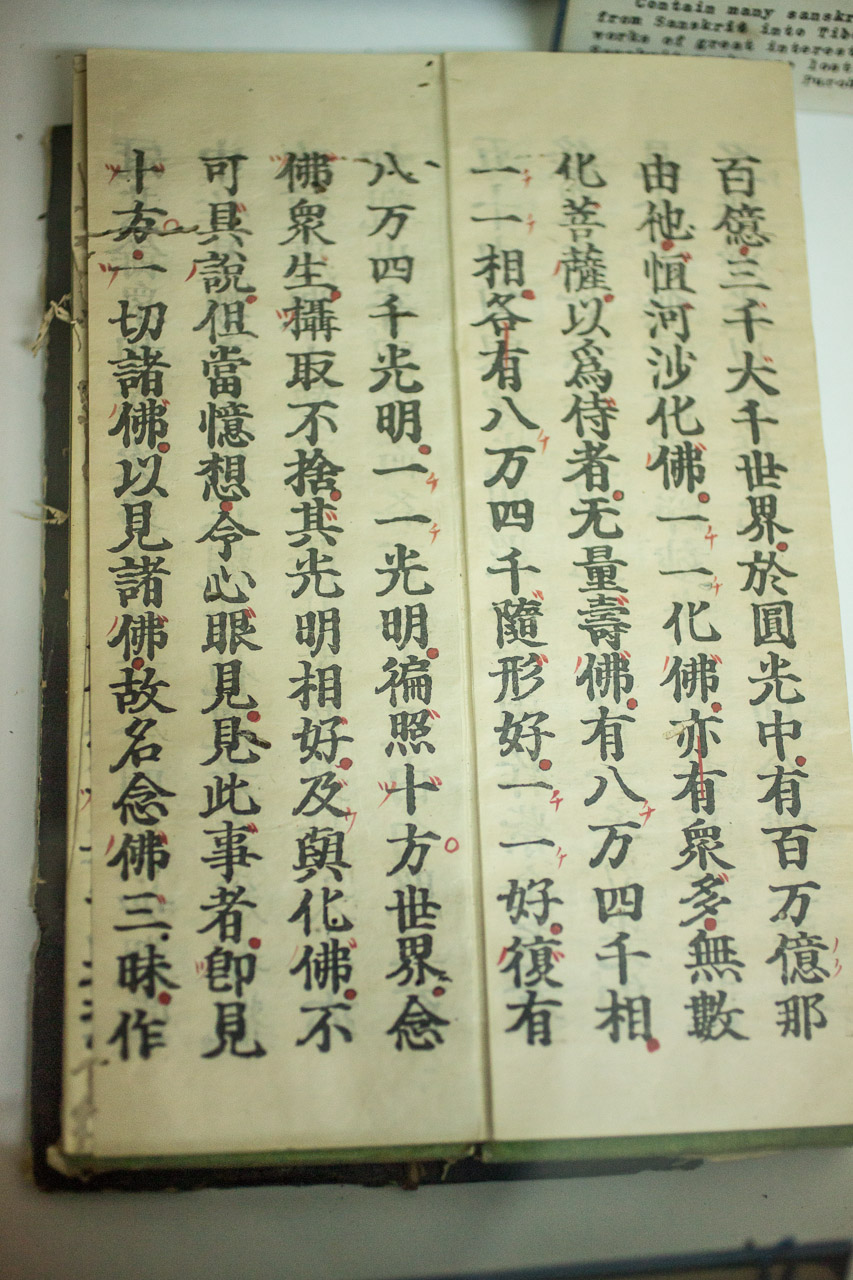 百億三千大千世界於圓光中有百万億那
由他恒河沙化佛一一化佛亦有衆多無數
化菩薩以爲侍者无量壽佛有八万四千相
一一相各有八万四千隨形好一一好復有
八万四千光明一一光明徧照十方世界念
佛衆生攝取不捨其光明相好及與化佛不
可具說但當憶想令心眼見見此事者卽見
十方一切諸佛以見諸佛故名念佛三昧作
Contain many sanskr
from Sanskrit into Tibe
works of great interest
lost